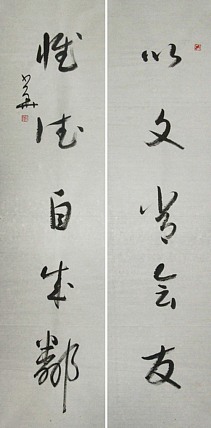 以文常会友
惟德自成鄰